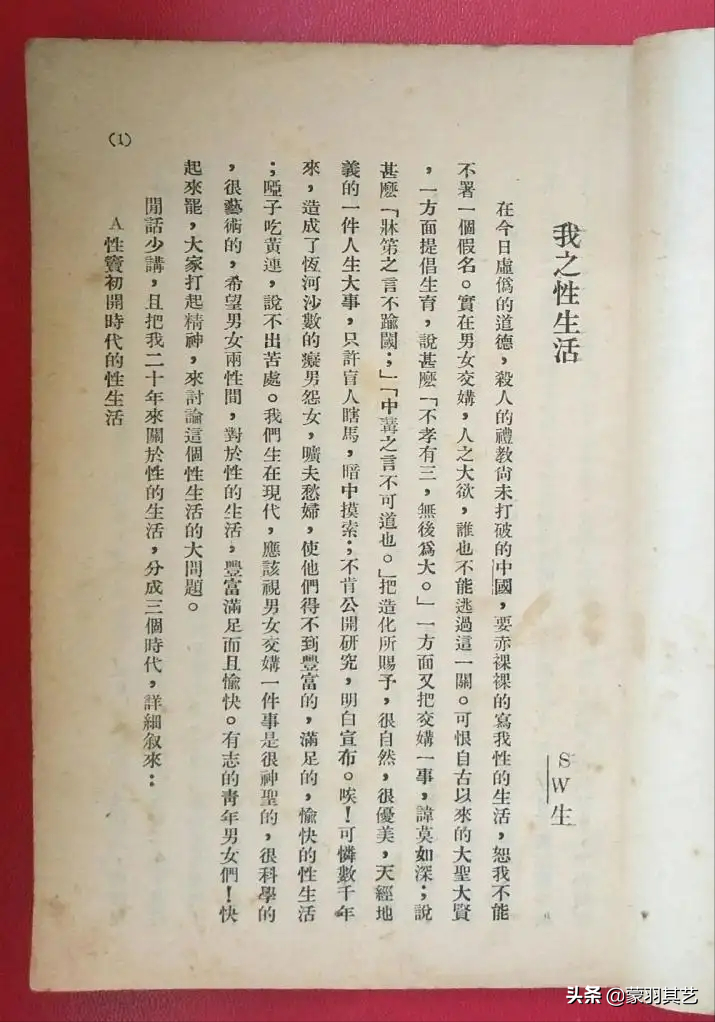 我之性生活
SW生
在今日虛僞的道德，殺人的禮教尙未打破的中國，要赤裸裸的寫我性的生活，恕我不能
不署一個假名。實在男女交媾，人之大欲，誰也不能逃過這一關。可恨自古以來的大聖大賢
，一方面提倡生育，說甚麼「不孝有三，無後爲大。」一方面又把交媾一事，諱莫如深；說
甚麼「牀笫之言不踰閾；」「中冓之言不可道也。」把造化所賜予，很自然，很優美，天經地
義的一件人生大事，只許盲人瞎馬，暗中摸索；不肯公開研究，明白宣布。唉！可憐數千年
來，造成了恆河沙數的癡男怨女，曠夫愁婦，使他們得不到豐富的，滿足的，愉快的性生活
；啞子吃黃連，說不出苦處。我們生在現代，應該視男女交媾一件事是很神聖的，很科學的
，很藝術的，希望男女兩性間，對於性的生活，豐富滿足而且愉快。有志的靑年男女們！快
起來罷，大家打起精神，來討論這個性生活的大問題。
閒話少講，且把我二十年來關於性的生活，分成三個時代，詳細叙來：
A性竇初開時代的性生活
(1)
头条 @蒙羽其艺